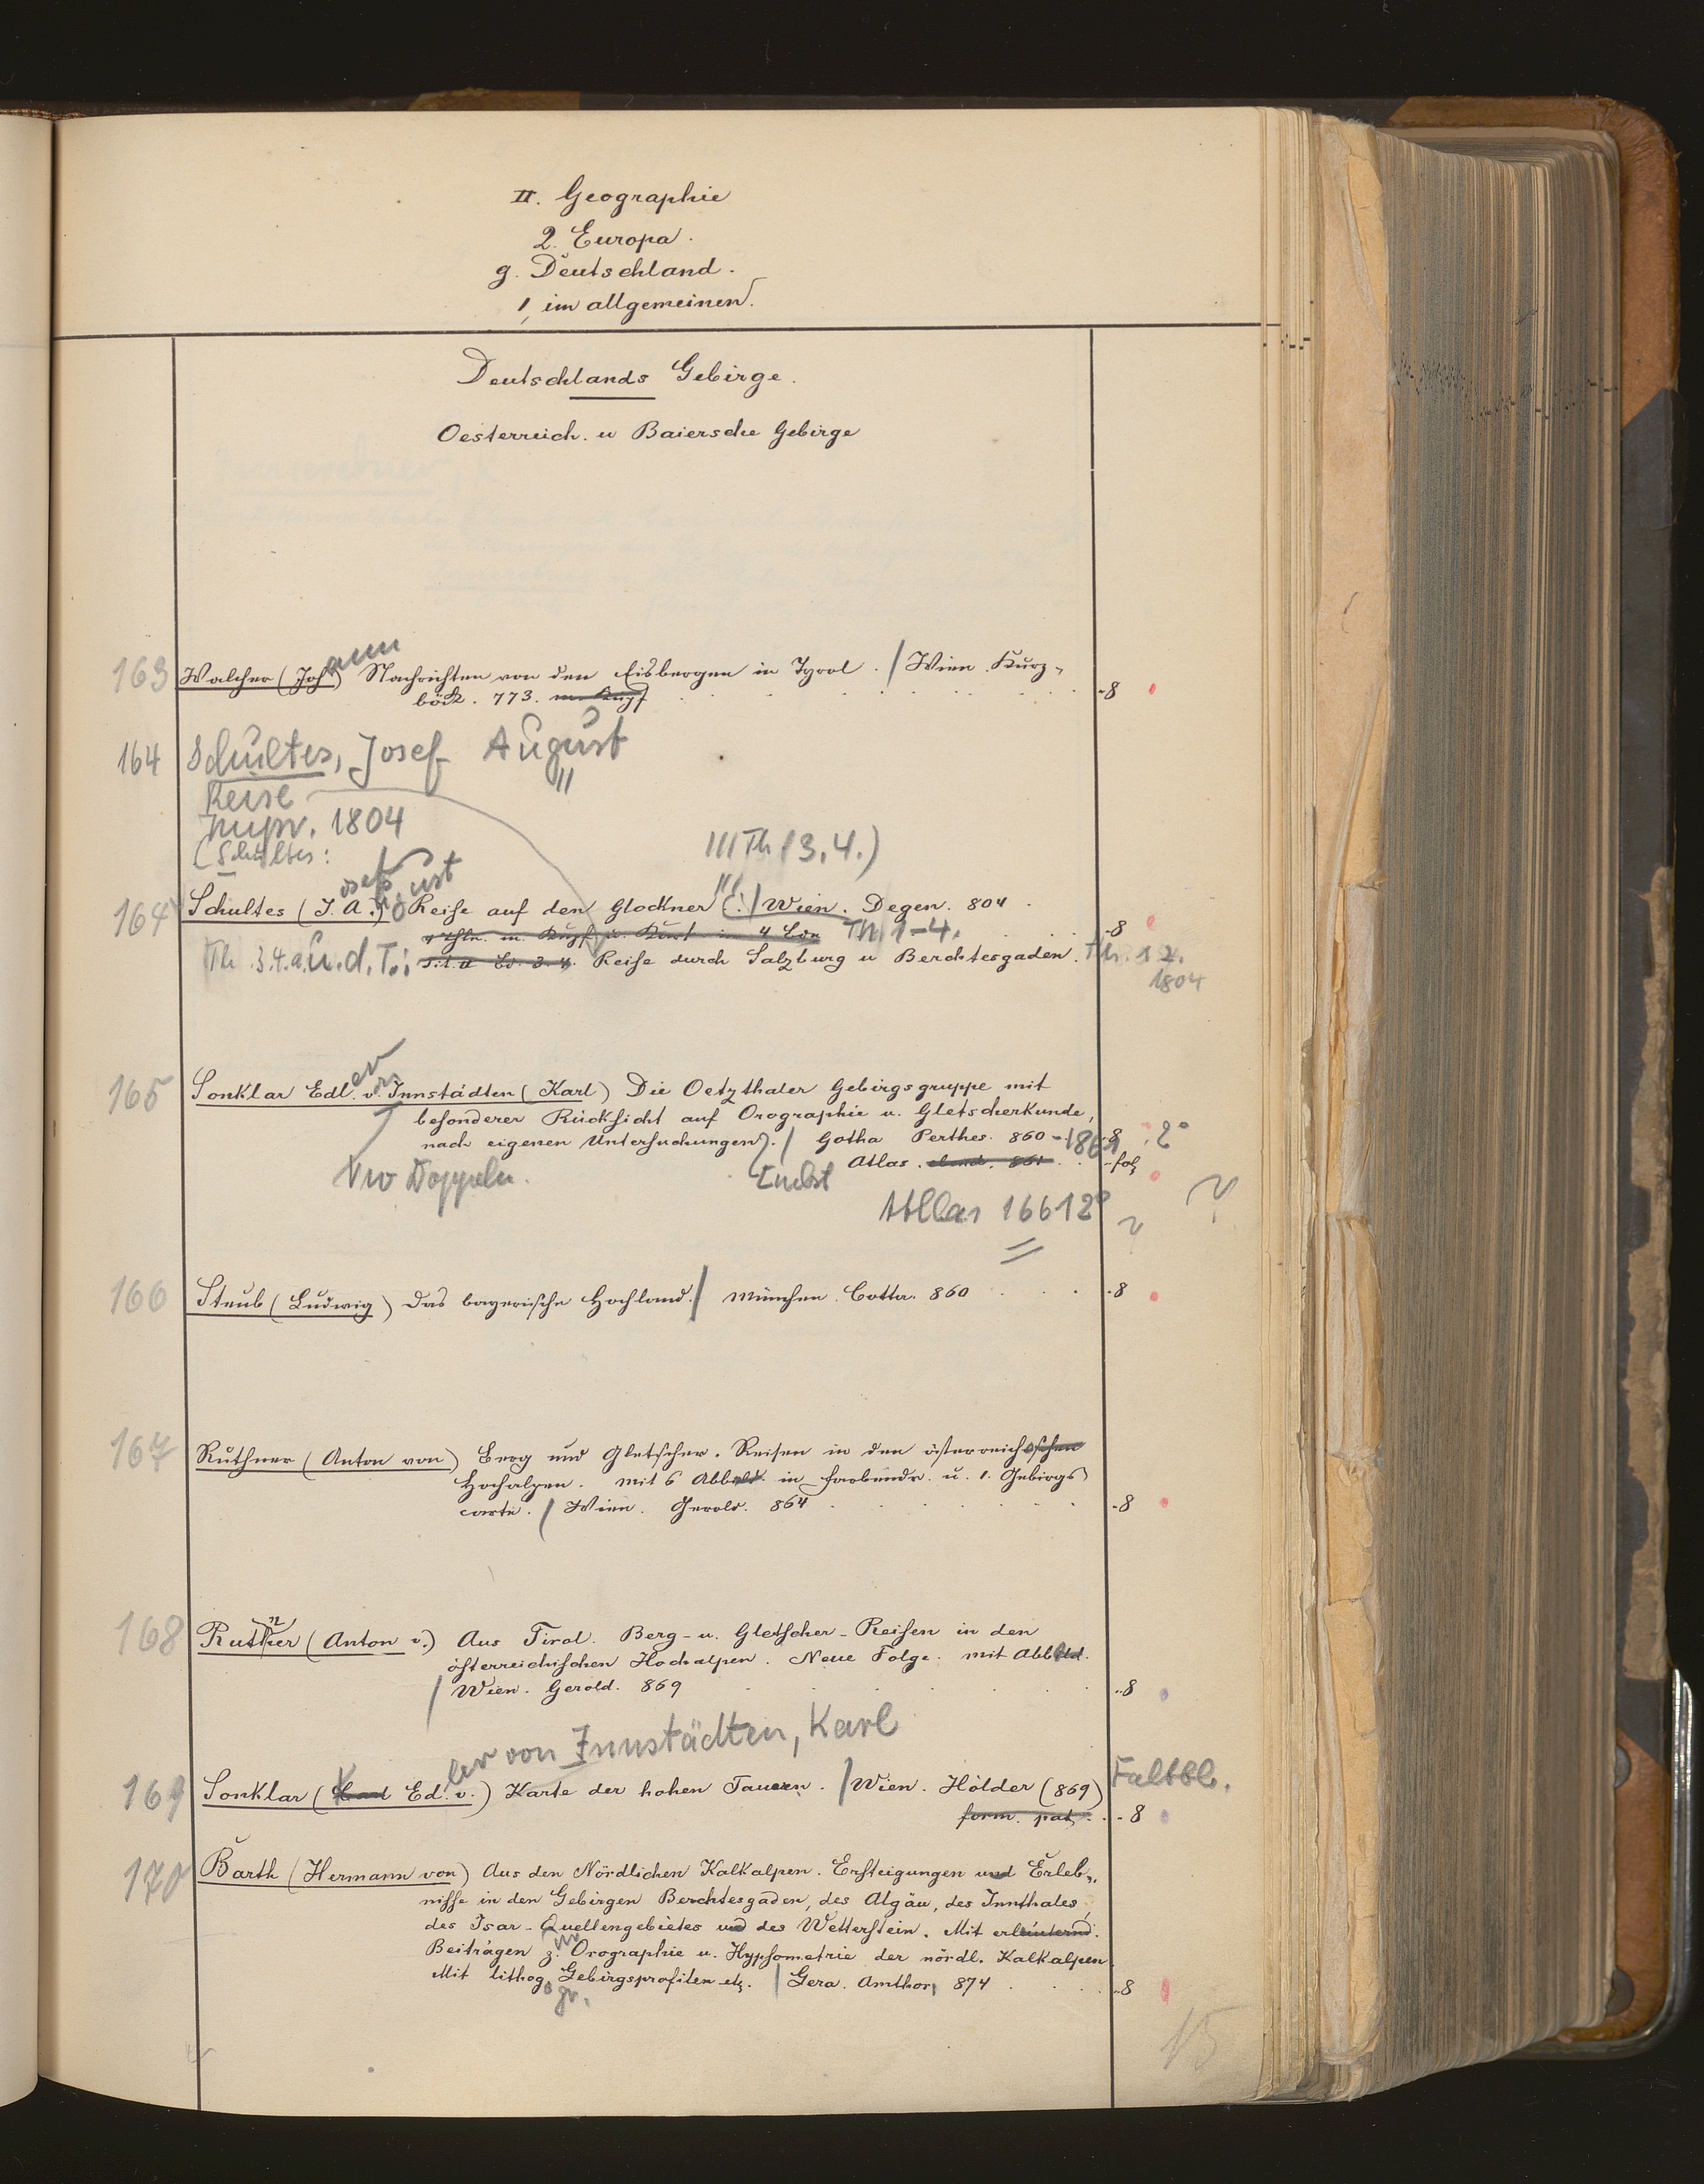 II. Geographie
2. Europa.
g. Deutschland.
1, im allgemeinen.
Deutschlands Gebirge.
Oesterreich. u Baiersche Gebirge
163 Walcher (Johann) Nachrichten von den Eisbergen in Tyrol. / Wien. Kurz-
böck. 773. m. Kupf -8
164 Schultes, Josef August
Reise
Impr. 1804
(Schultes:
III Th (3. 4.)
164 Schultes (J. A.) Reise auf den Glockner / Wien. Degen. 804.
4 Thle. m. Kupf u. Kart in 4 Bde Th 1-4. -8
Th. 3.4. a. u. d. T.: Reise durch Salzburg u Berchtesgaden. Th. 1 2.
1804
165 Sonklar Edler von Innstädten (Karl) Die Oetzthaler Gebirgsgruppe mit
besonderer Rücksicht auf Orographie u. Gletscherkunde,
nach eigenen Untersuchungen. / Gotha Perthes. 860-1861 -8 2°
Atlas. ebend. 861 fol
Atlas 1661 2°
166 Steub (Ludwig) Das bayerische Hochland. / München. Cotta. 860 -8
167 Ruthner (Anton von) Berg und Gletscher-Reisen in den österreichischen
Hochalpen. mit 6 Abbild. in Farbendr. u. 1. Gebirgs
carte. / Wien. Gerold. 864 -8
168 Ruthner (Anton v.) Aus Tirol. Berg- u. Gletscher-Reisen in den
österreichischen Hochalpen. Neue Folge. mit Abbild.
/ Wien. Gerold. 869 -8
ler von Innstädten, Karl
169 Sonklar (Karl Ed. v.) Karte der hohen Tauern. / Wien. Hölder (869) Faltbl.
form. pat. -8
170 Barth (Hermann von) Aus den Nördlichen Kalkalpen. Ersteigungen und Erleb-
nisse in den Gebirgen Berchtesgaden, des Algäu, des Innthales,
des Isar-Quellengebietes und des Wetterstein. Mit erläuternd.
Beiträgen zur Orographie u. Hypsometrie der nördl. Kalkalpen
Mit lithogr. Gebirgsprofilen etz. / Gera. Amthor, 874 -8
15